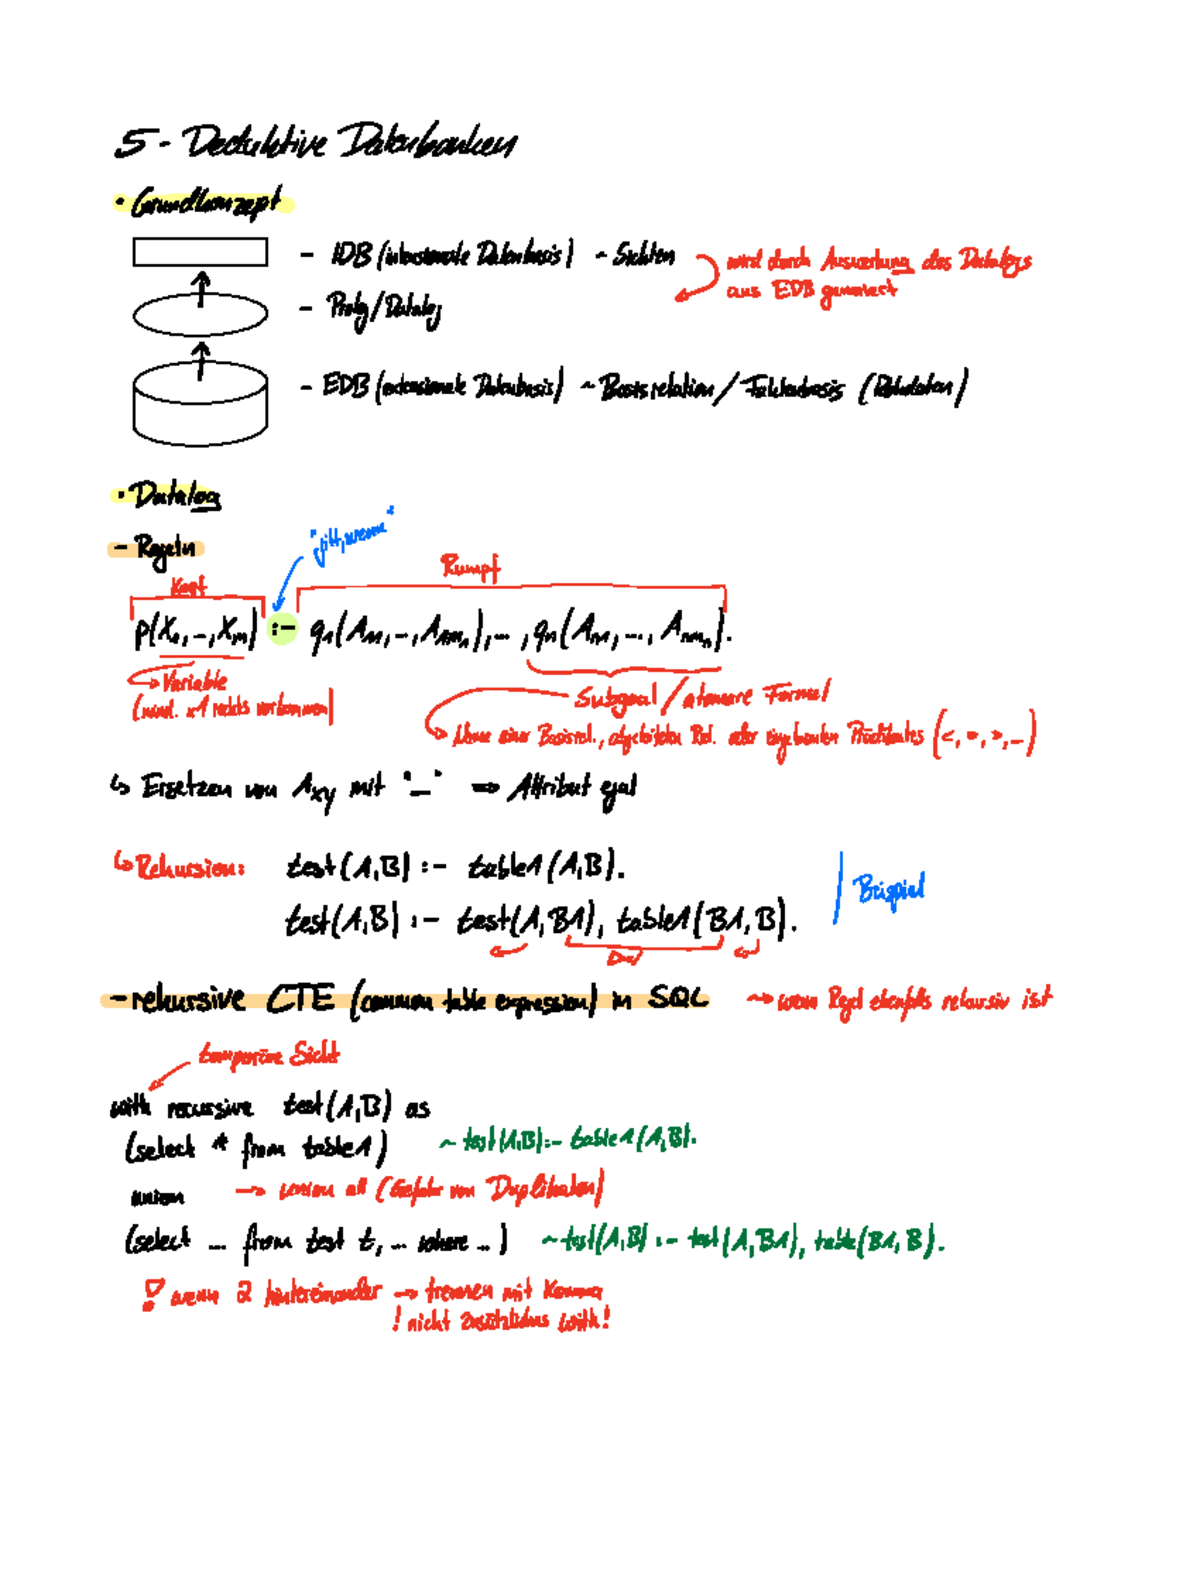 5 - Deduktive Datenbanken
• Grundkonzept
- IDB (intensionale Datenbasis) ~ Sichten
wird durch Auswertung des Datalogs
aus EDB generiert
- Prolog/Datalog
- EDB (extensionale Datenbasis) ~ Basisrelation / Faktenbasis (Rohdaten)
• Datalog
- Regeln
"gilt, wenn"
Kopf
Rumpf
p(X₁,...,Xₘ) :- q₁(A₁₁,...,A₁ₘ₁),..., qₙ(Aₙ₁,...,Aₙₘₙ).
→ Variable
(mind. x1 rechts vorkommen)
Subgoal / atomare Formel
→ Name einer Basisrel., abgeleiteten Rel. oder eingebauten Prädikates (<, =, >, ...)
↳ Ersetzen von Axy mit "_" => Attribut egal
↳ Rekursion: test(A,B) :- table1(A,B).
test(A,B) :- test(A,B1), table1(B1,B).
Beispiel
- rekursive CTE (common table expression) in SQL ~> wenn Regel ebenfalls rekursiv ist
temporäre Sicht
with recursive test(A,B) as
(select * from table1) ~ test(A,B) :- table1(A,B).
union → union all (Gefahr von Duplikaten)
(select ... from test t, ... where ...) ~ test(A,B) :- test(A,B1), table(B1,B).
! wenn 2 hintereinander → trennen mit Komma
! nicht zusätzliches with!